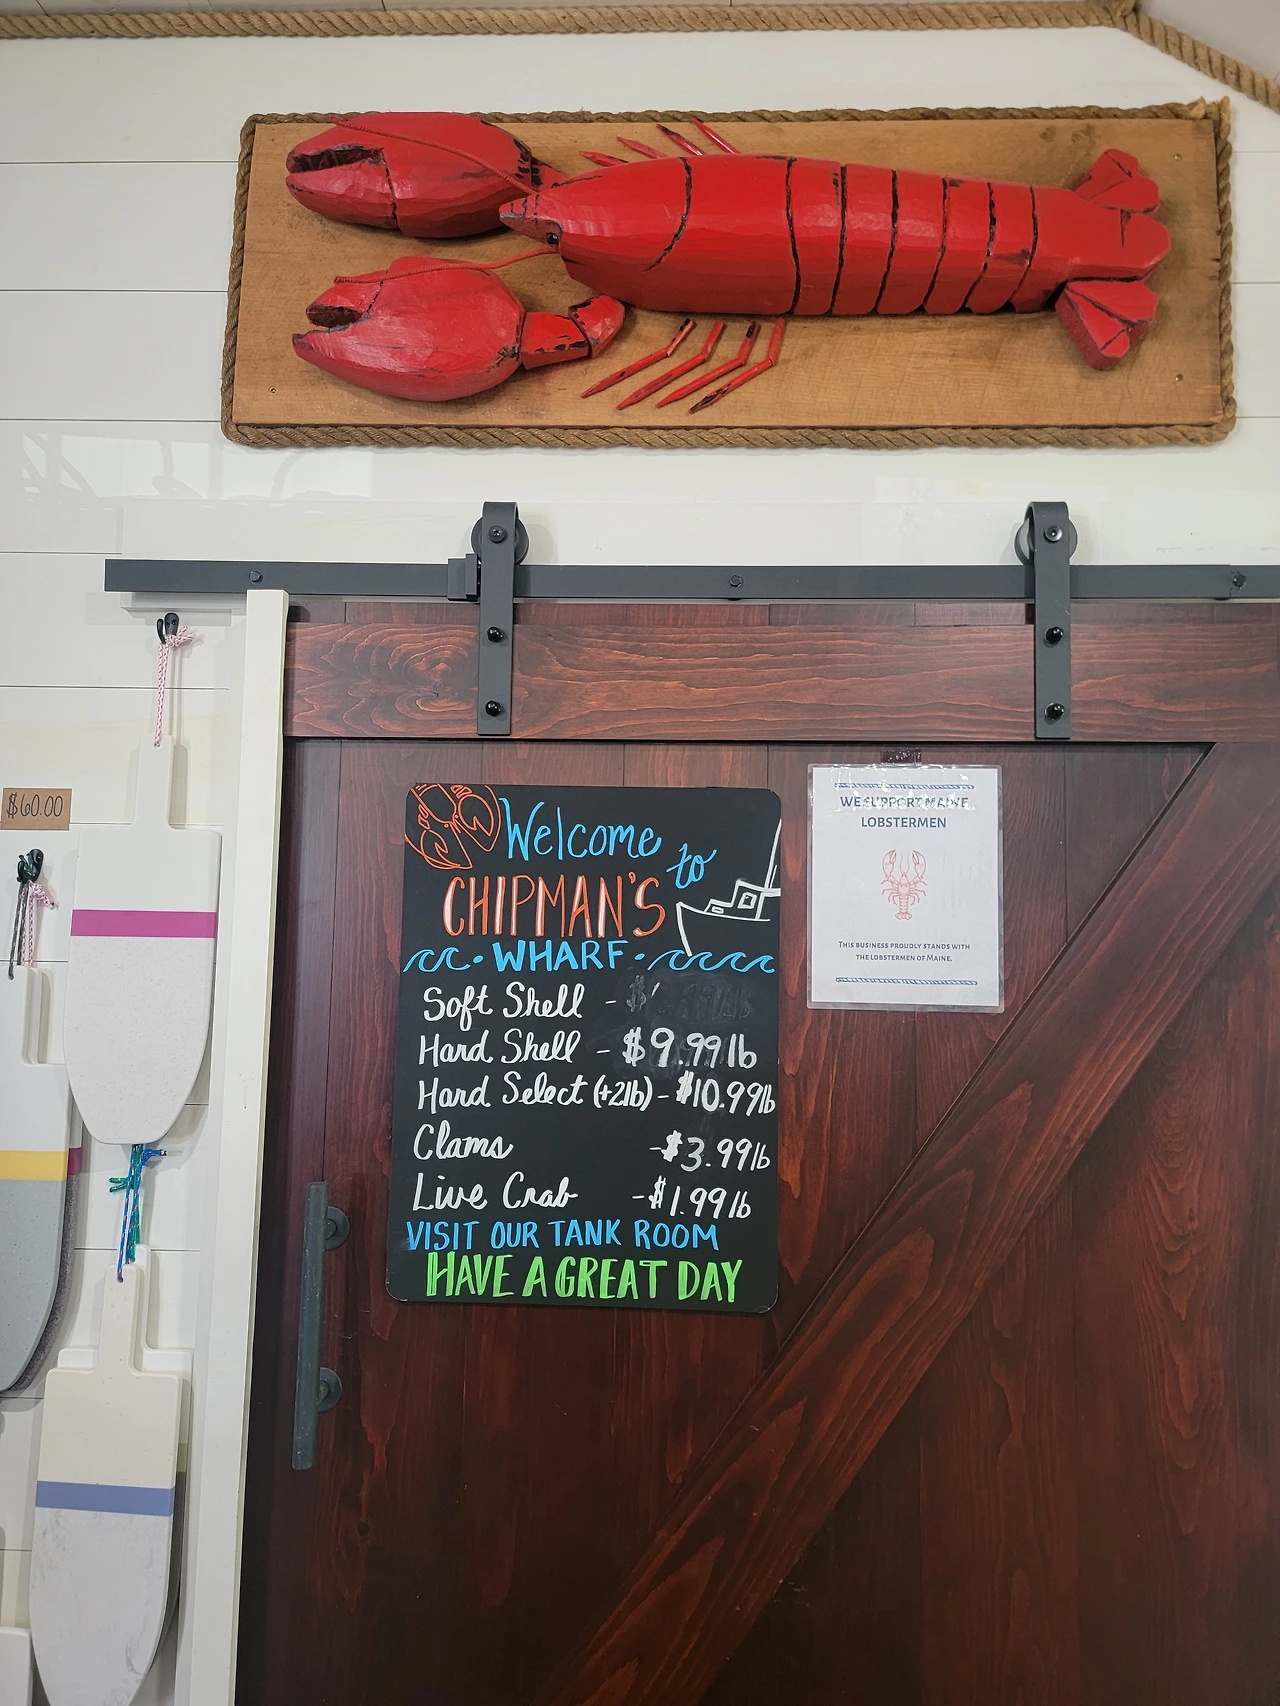 $60.00
Welcome
to
CHIPMAN'S
WHARF
Soft Shell -
Hard Shell - $9.99 lb
Hard Select (+2lb) - $10.99 lb
Clams - $3.99 lb
Live Crab - $1.99 lb
VISIT OUR TANK ROOM
HAVE A GREAT DAY
WE SUPPORT MAINE
LOBSTERMEN
THIS BUSINESS PROUDLY STANDS WITH
THE LOBSTERMEN OF MAINE.